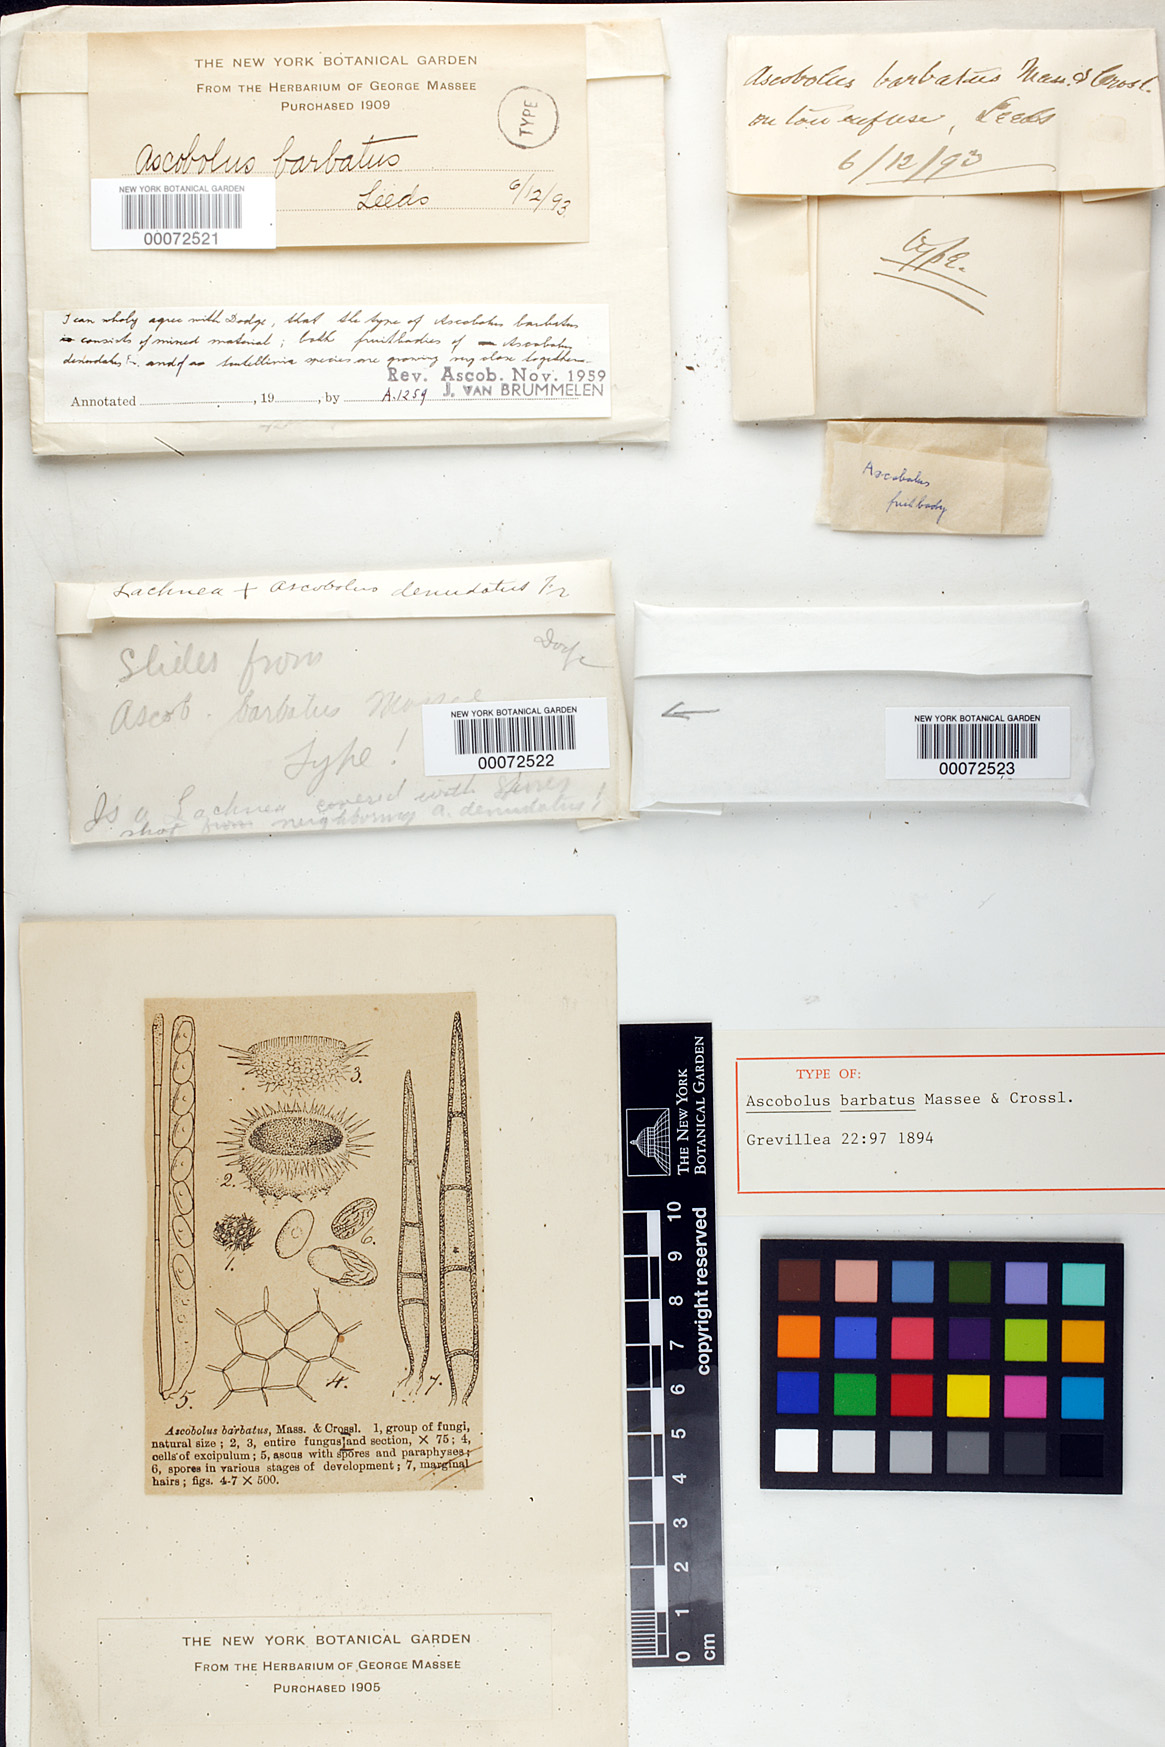 THE NEW YORK BOTANICAL GARDEN
FROM THE HERBARIUM OF GEORGE MASSEE
PURCHASED 1909
TYPE
Ascobolus barbatus
Leeds 6/12/93
NEW YORK BOTANICAL GARDEN
00072521
I can wholy agree with Dodge, that the type of Ascobolus barbatus
consists of mixed material; both fruitbodies of Ascobolus
denudatus Fr. and of a Scutellinia species are growing very close together.
Rev. Ascob. Nov. 1959
Annotated , 19 , by A.1259 J. VAN BRUMMELEN
Ascobolus barbatus Mass. & Crossl.
on tow refuse, Leeds
6/12/93
type.
Ascobolus
fruitbody
Lachnea + Ascobolus denudatus Fr
Slides from
Dodge
Ascob. barbatus Massee
Type!
Is a Lachnea covered with spores
shot from neighboring A. denudatus!
NEW YORK BOTANICAL GARDEN
00072522
NEW YORK BOTANICAL GARDEN
00072523
3.
2.
1.
6.
4.
5.
7.
Ascobolus barbatus, Mass. & Crossl. 1, group of fungi,
natural size; 2, 3, entire fungus and section, × 75; 4,
cells of excipulum; 5, ascus with spores and paraphyses;
6, spores in various stages of development; 7, marginal
hairs; figs. 4-7 × 500.
THE NEW YORK BOTANICAL GARDEN
FROM THE HERBARIUM OF GEORGE MASSEE
PURCHASED 1905
THE NEW YORK
BOTANICAL GARDEN
copyright reserved
10
9
8
7
6
5
4
3
2
1
0
cm
TYPE OF:
Ascobolus barbatus Massee & Crossl.
Grevillea 22:97 1894